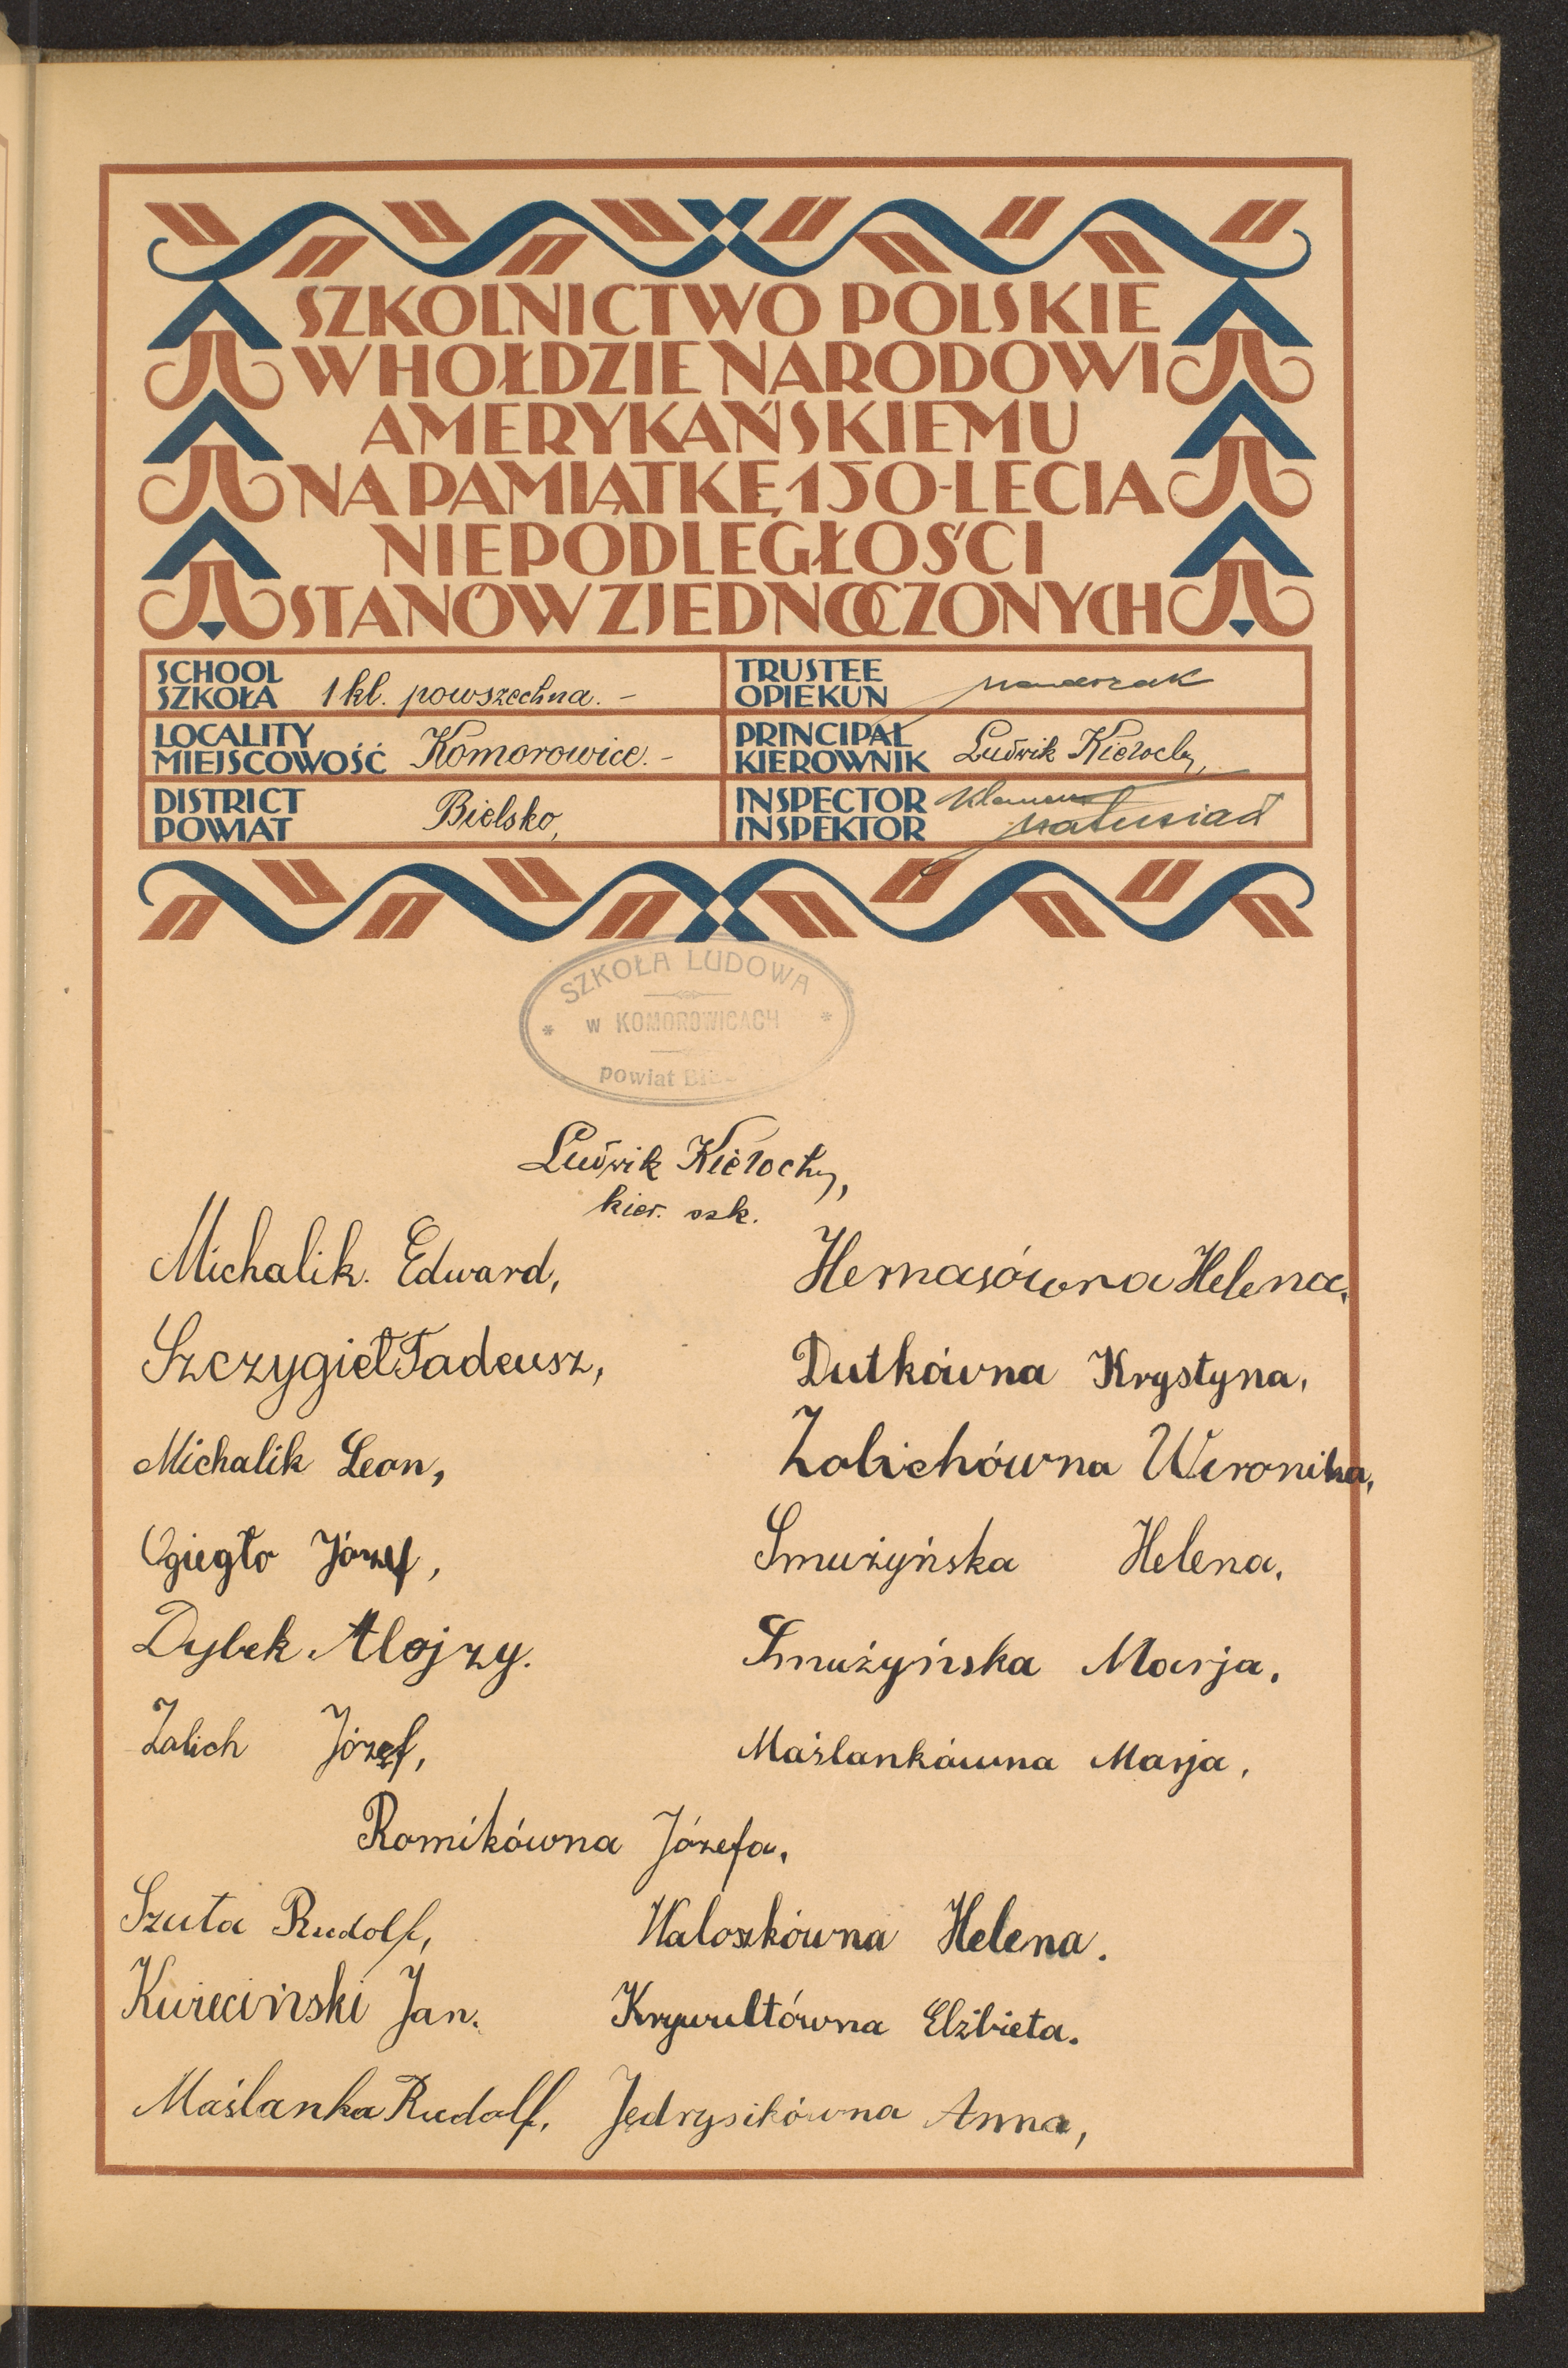 SZKOLNICTWO POLSKIE
W HOŁDZIE NARODOWI
AMERYKAŃSKIEMU
NA PAMIĄTKĘ 150-LECIA
NIEPODLEGŁOŚCI
STANÓW ZJEDNOCZONYCH
SCHOOL
SZKOŁA 1 kl. powszechna. –
TRUSTEE
OPIEKUN
LOCALITY
MIEJSCOWOŚĆ Komorowice. –
PRINCIPAL
KIEROWNIK Ludwik Kierochy,
DISTRICT
POWIAT Bielsko,
INSPECTOR
INSPEKTOR Klemens Matusiak
SZKOŁA LUDOWA
* w KOMOROWICACH *
powiat
Ludwik Kierochy,
kier. szk.
Michalik. Edward,
Hernasówna Helena.
Szczygieł Tadeusz,
Dutkówna Krystyna,
Michalik Leon,
Zolichówna Weronika,
Ogiegło Józef,
Smużyńska Helena,
Dybek Alojzy.
Smużyńska Marja,
Zolich Józef,
Maślankówna Marja,
Romikówna Józefa,
Szuta Rudolf,
Waloszkówna Helena.
Jan.
Krywultówna Elżbieta.
Maślanka Rudolf,
Jędrysikówna Anna,